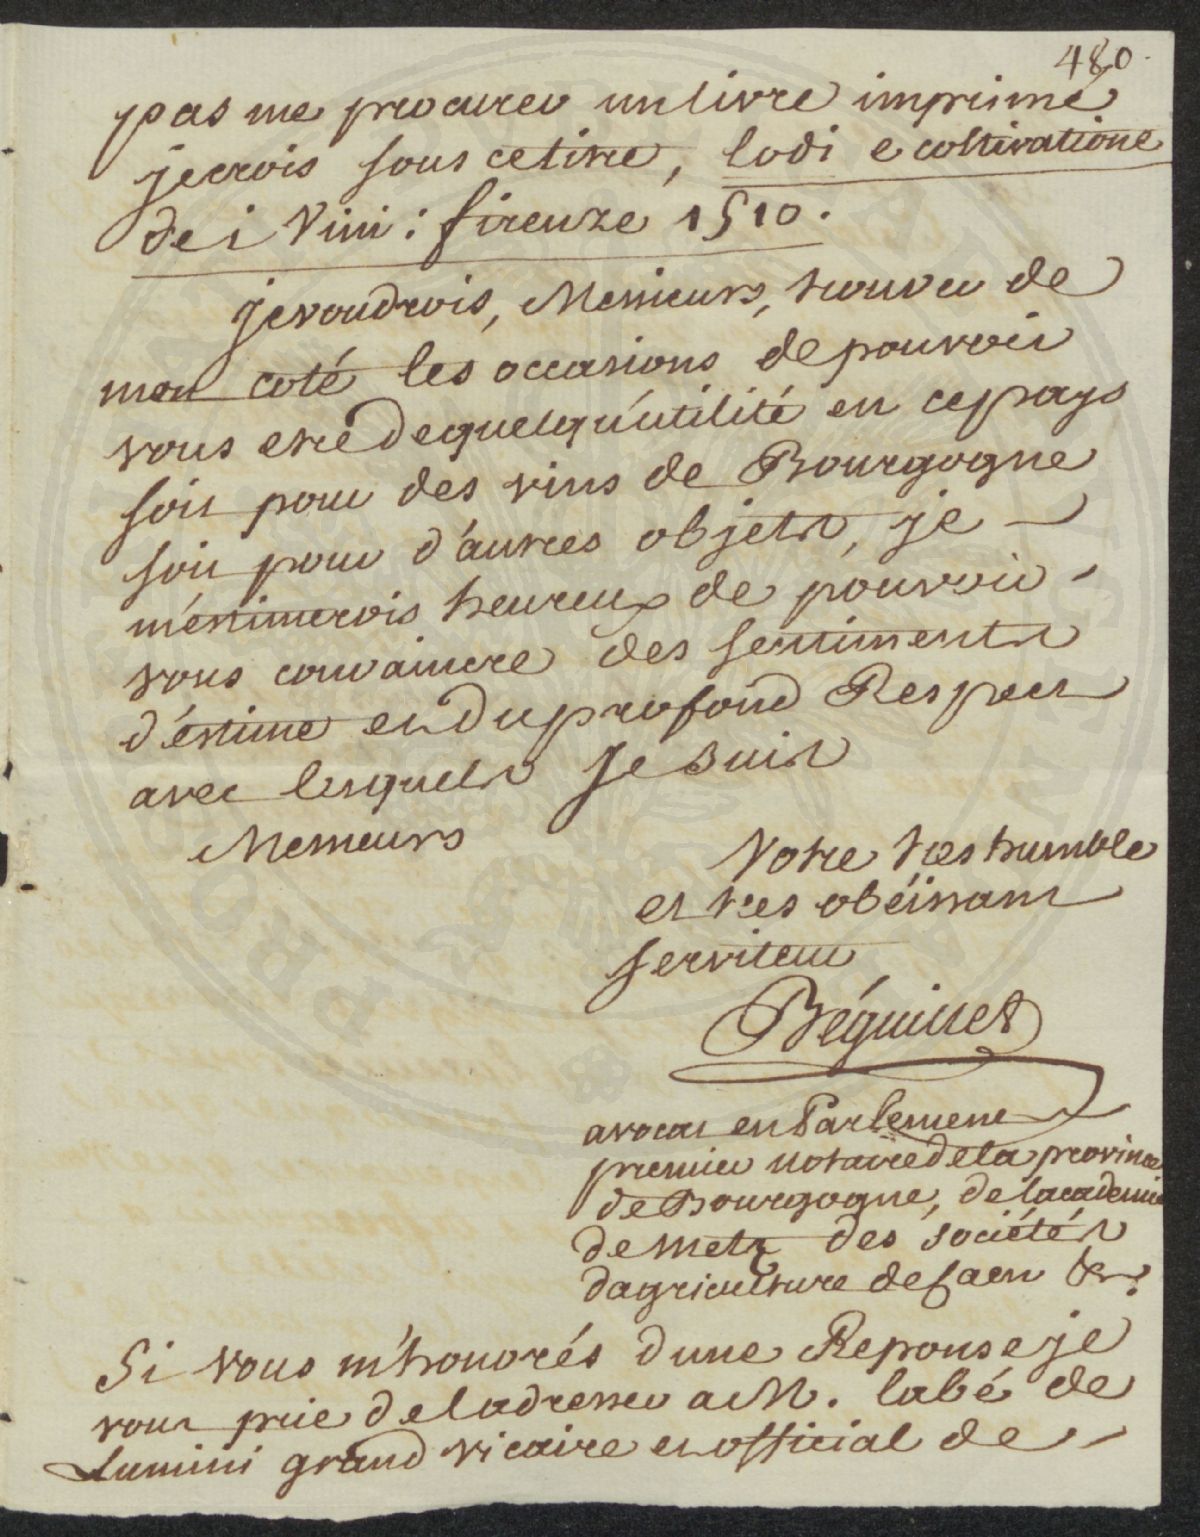 480.
pas me procurer un livre imprimé
je crois sous ce titre, lodi e coltivatione
dei Vini : firenze 1510.
je voudrois, Messieurs, trouver de
mon coté les occasions de pouvoir
vous etre de quelqu'utilité en ce pays
soit pour des vins de Bourgogne
soit pour d'autres objets, je
m'estimerois heureux de pouvoir
vous convaincre des sentiments
d'estime et du profond Respect
avec lesquels Je suis
Messieurs
Votre tres humble
et tres obéissant
serviteur
Béguillet
avocat en Parlement
premier notaire de la province
de Bourgogne, de l'academie
de metz des sociétés
dagriculture de Caen &c.
Si vous m'honorés dune Reponse je
vous prie de ladresser a M. labé de
Lumini grand vicaire et official de